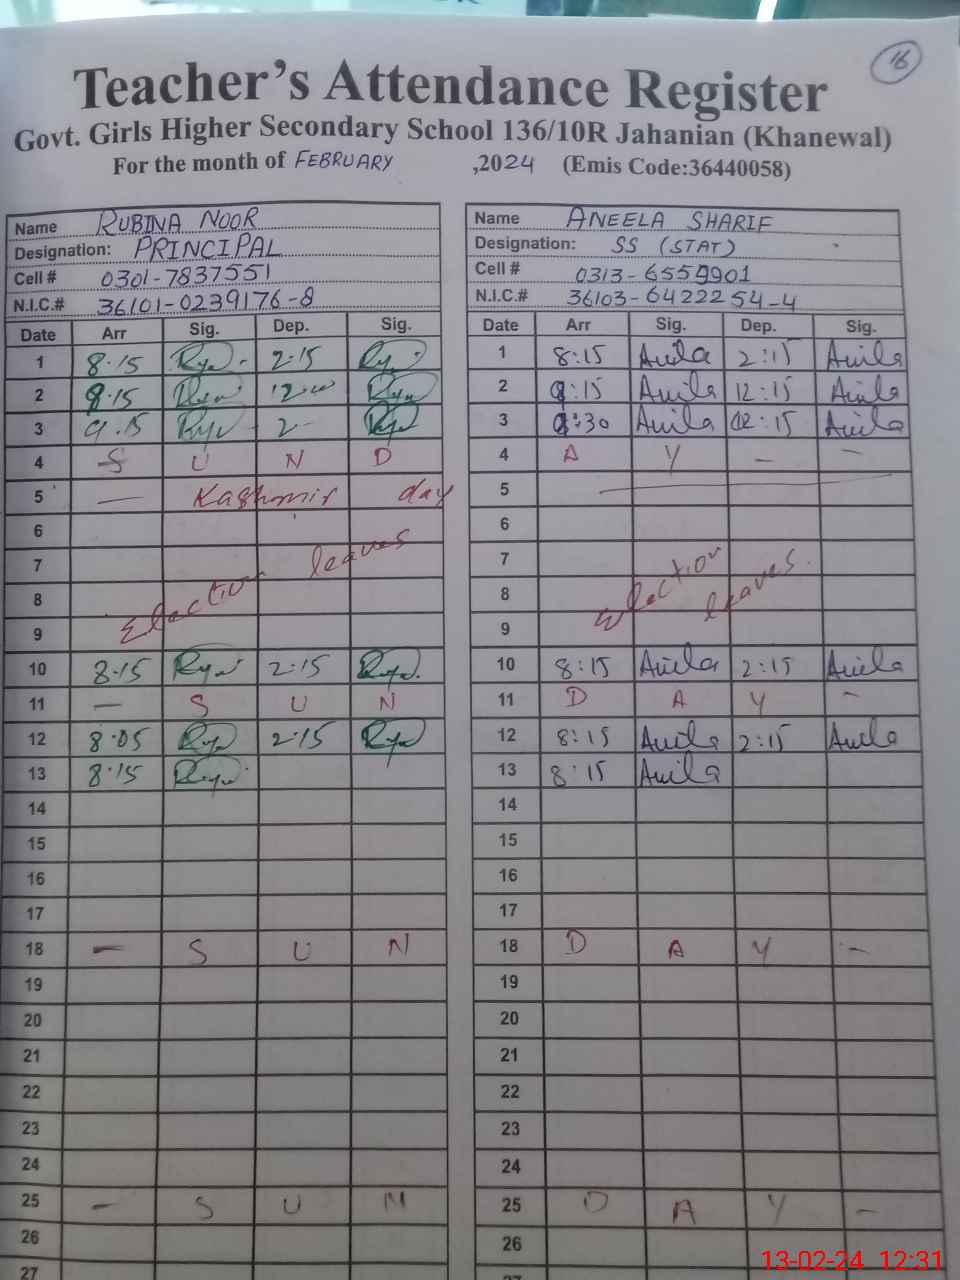 16
Teacher's Attendance Register
Govt. Girls Higher Secondary School 136/10R Jahanian (Khanewal)
For the month of FEBRUARY ,2024 (Emis Code:36440058)
Name RUBINA NOOR
Designation: PRINCIPAL
Cell # 0301-7837551
N.I.C.# 36101-0239176-8
Date Arr Sig. Dep. Sig.
1 8.15 2:15
2 9.15 12:00
3 9.15 2-
4 S U N D
5 — Kashmir day
6
7
8
9
Election leaves
10 8.15 2:15
11 — S U N
12 8.05 2:15
13 8.15
14
15
16
17
18 — S U N
19
20
21
22
23
24
25 — S U N
26
27
Name ANEELA SHARIF
Designation: SS (STAT)
Cell # 0313-6559901
N.I.C.# 36103-6422254-4
Date Arr Sig. Dep. Sig.
1 8:15 Anila 2:15 Anila
2 9:15 Anila 12:15 Anila
3 8:30 Anila 12:15 Anila
4 A Y — —
5
6
7
8
9
Election leaves
10 8:15 Anila 2:15 Anila
11 D A Y —
12 8:15 Anila 2:15 Anila
13 8:15 Anila
14
15
16
17
18 D A Y —
19
20
21
22
23
24
25 D A Y —
26
13-02-24 12:31